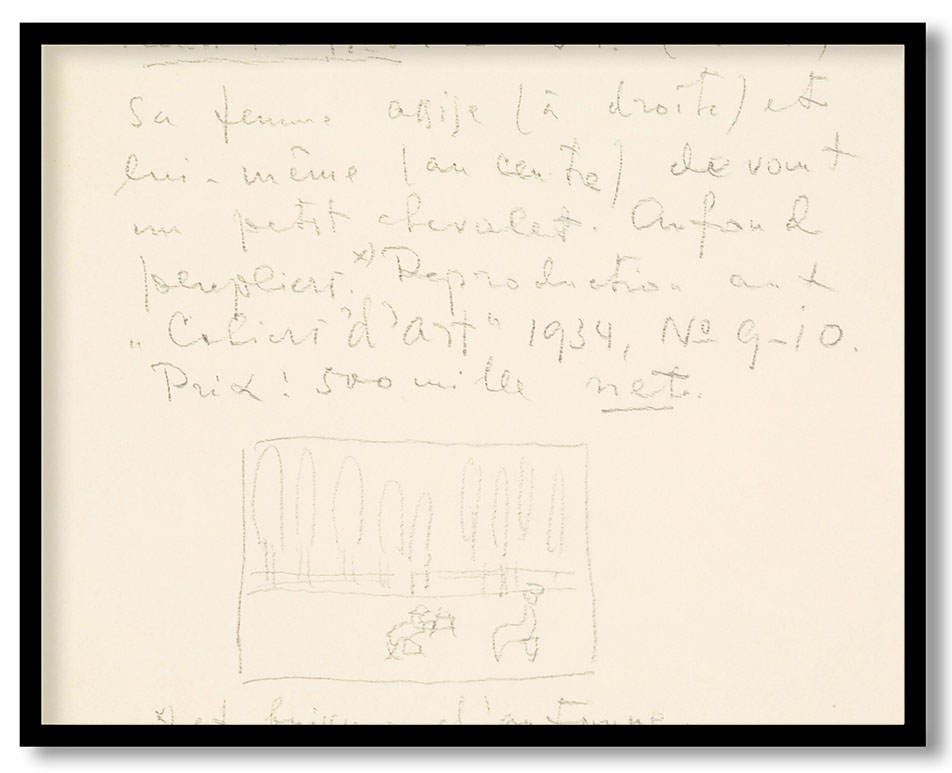 Sa femme assise (à droite) et
lui-même (au centre) devant
un petit chevalet. Au fond
peupliers.x) Reproduction aux
„Cahiers d'art" 1934, No 9-10.
Prix : 500 mille net.
x) et d'automne.